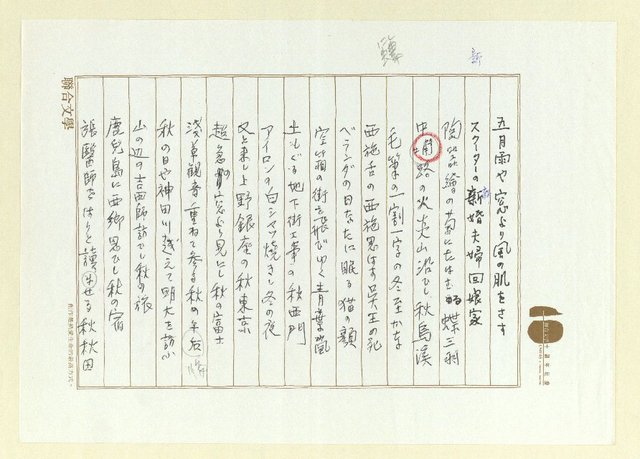 五月雨や窓より風の肌をさす
スクーターの新婚夫婦回娘家
陶器繪の菊にたはむる蝶三羽
中埔路の火炎山沿ひし秋烏溪
毛筆の一割一字の冬至かな
西施舌の西施思はす呉王の死
ベランダの日なたに眠る猫の顔
空笛の街を飛びゆく五月
土もぐる地下街工事の秋西門
アイロンの白シャツ焼きし冬の夜
又と来し上野銀座の秋東京
超急賣窓より見にし秋の富士
浅草観音重ねて参る秋の午后
秋の日や神田川越えて明大を訪ふ
山の辺の吉田師訪ひし秋の旅
鹿児島に西郷思ひし秋の宿
張醫師をほろりと醉はせる秋秋田
新
聯合文學